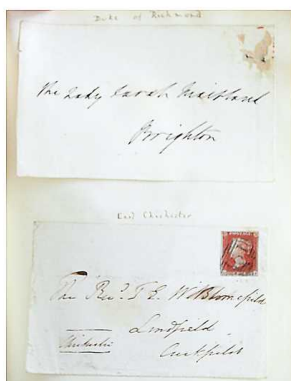 Duke of Richmond
The Lady Sarah Maitland
Brighton
Earl Chichester
The Revd. T E. W. Bloomefield
Lindfield
Cuckfield
Chichester